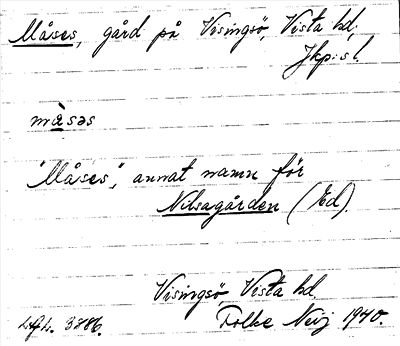 Måses, gård på Visingsö, Vista hd,
Jkp:s l.
màsəs
"Måses", annat namn för
Nilsagården (Ed).
Visingsö Vista hd.
3886. Folke Neij 1940.